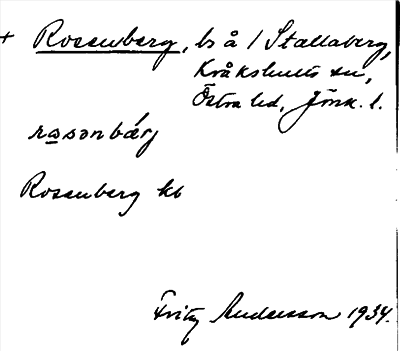 + Rosenberg, bs å 1 Stallaberg,
Kråkshults sn,
Östra hd, Jönk. l.
rasənbærj
Rosenberg kb
Fritz Andersson 1934.